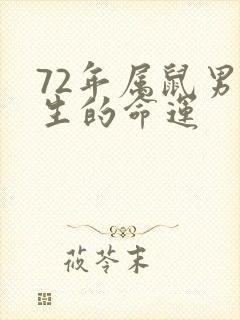 72年属鼠男
生的命运
莜苓末